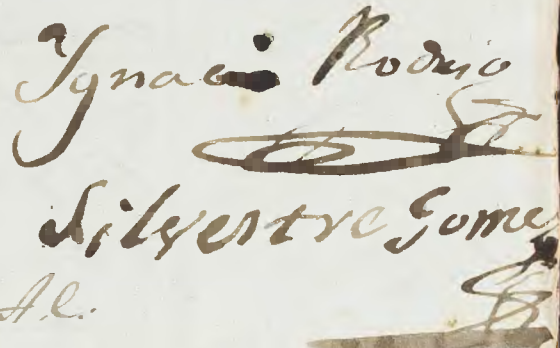 Ygnacio Rodrio
Silvestre Gome
A.C.